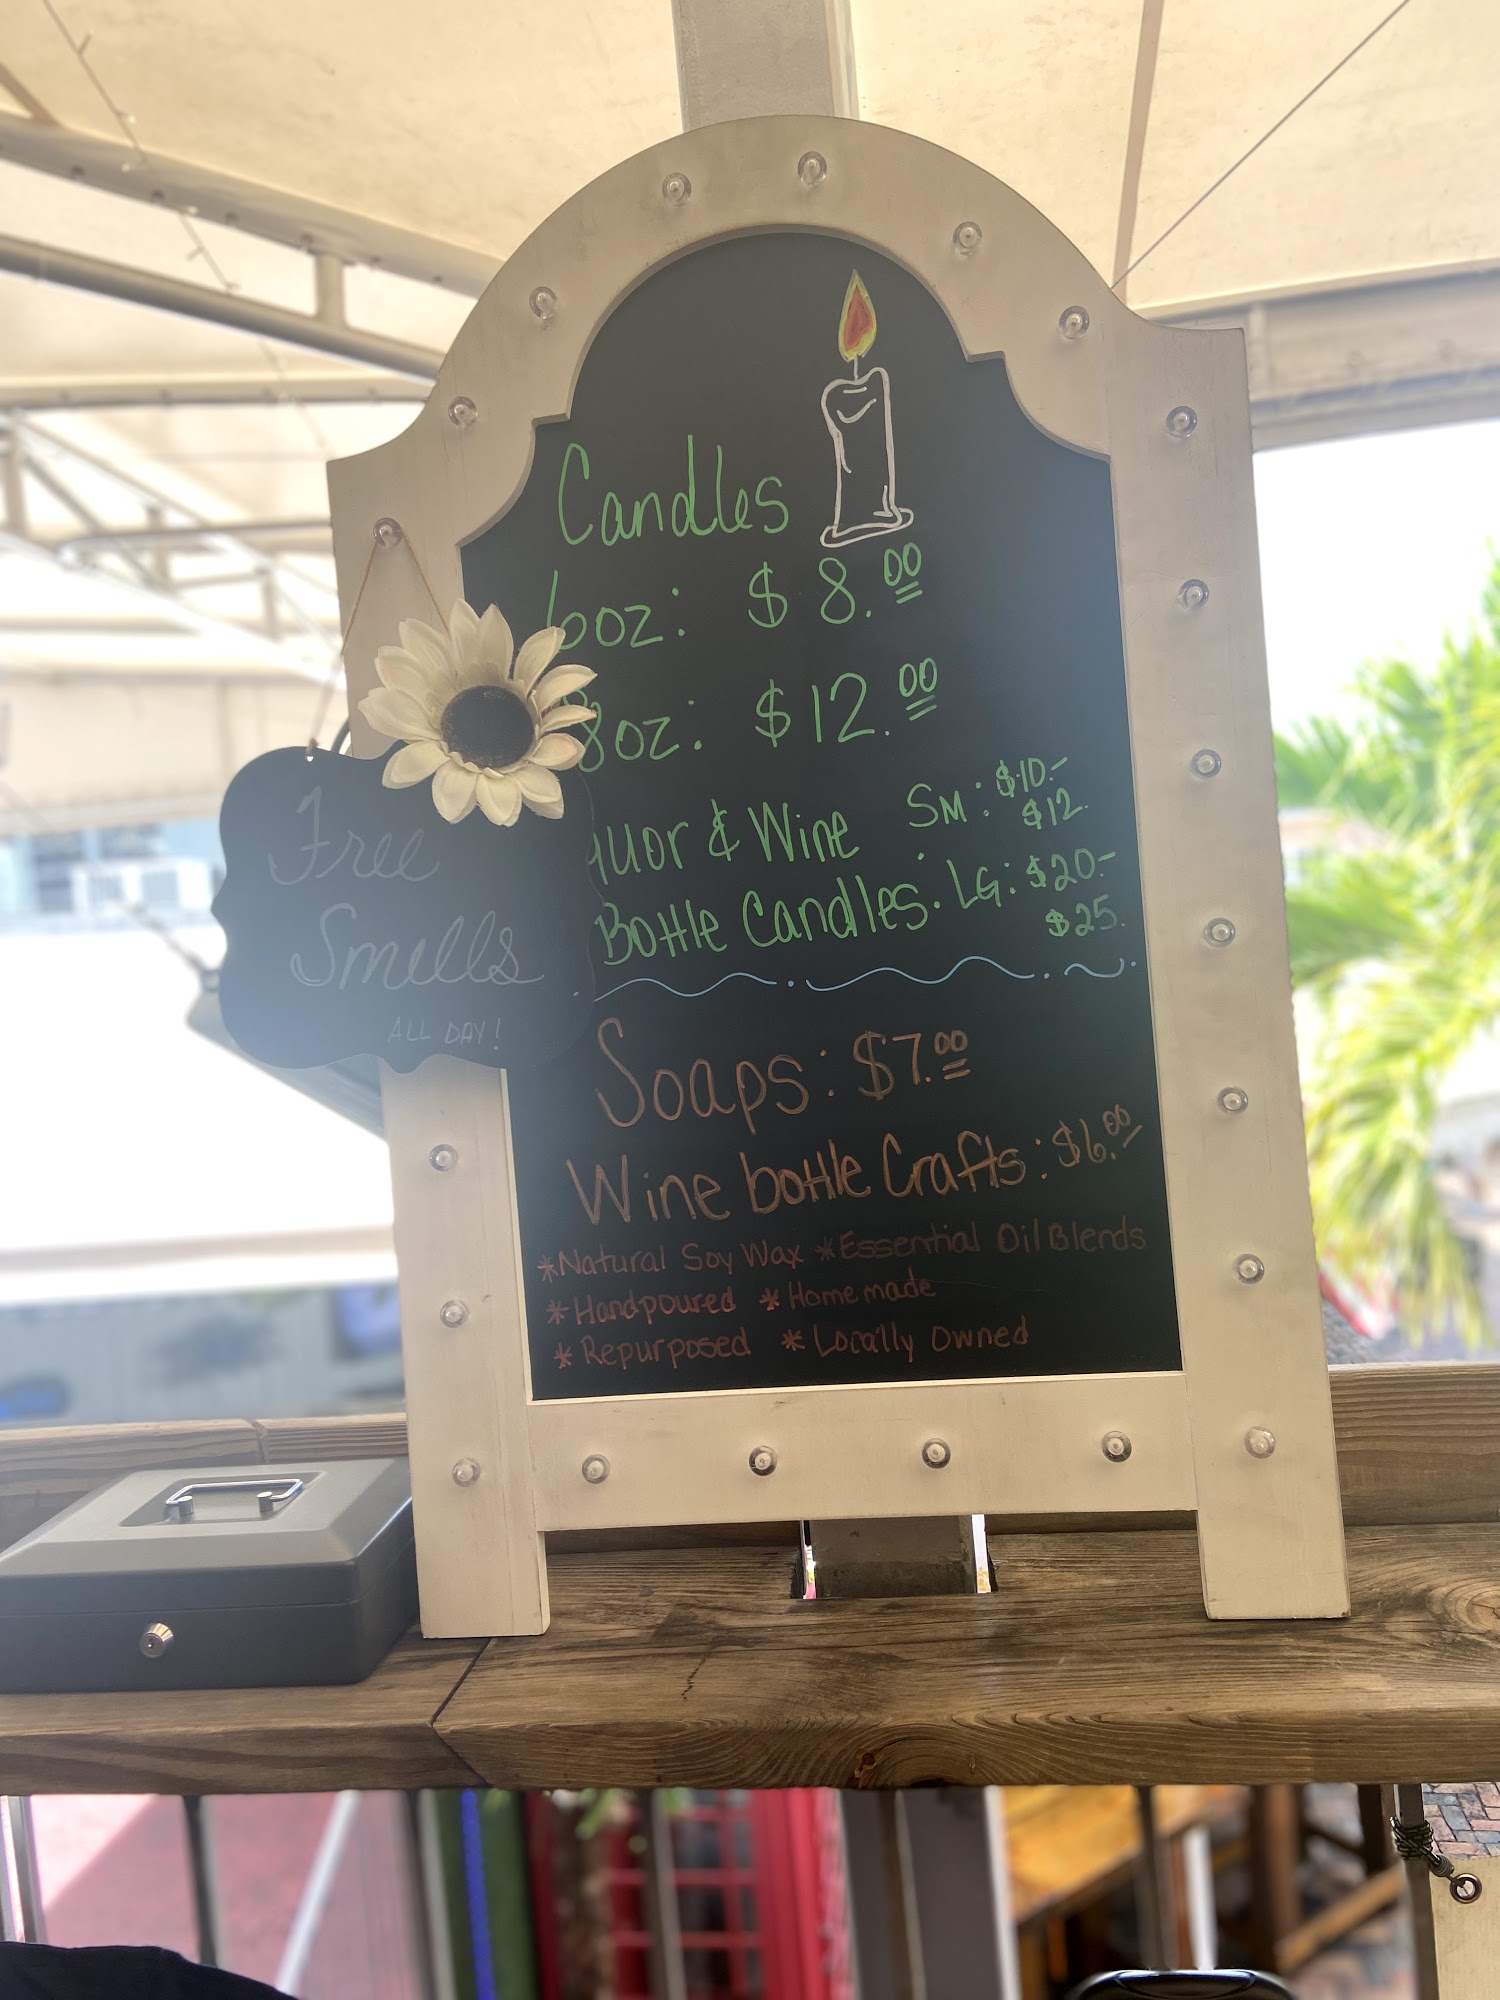 Candles
6oz: $8.00
8oz: $12.00
quor & Wine SM: $10.-
$12.
Bottle Candles: LG: $20.-
$25.
Soaps: $7.00
Wine bottle Crafts: $6.00
*Natural Soy Wax *Essential Oil Blends
*Handpoured *Homemade
*Repurposed *Locally Owned
Free
Smells
ALL DAY!